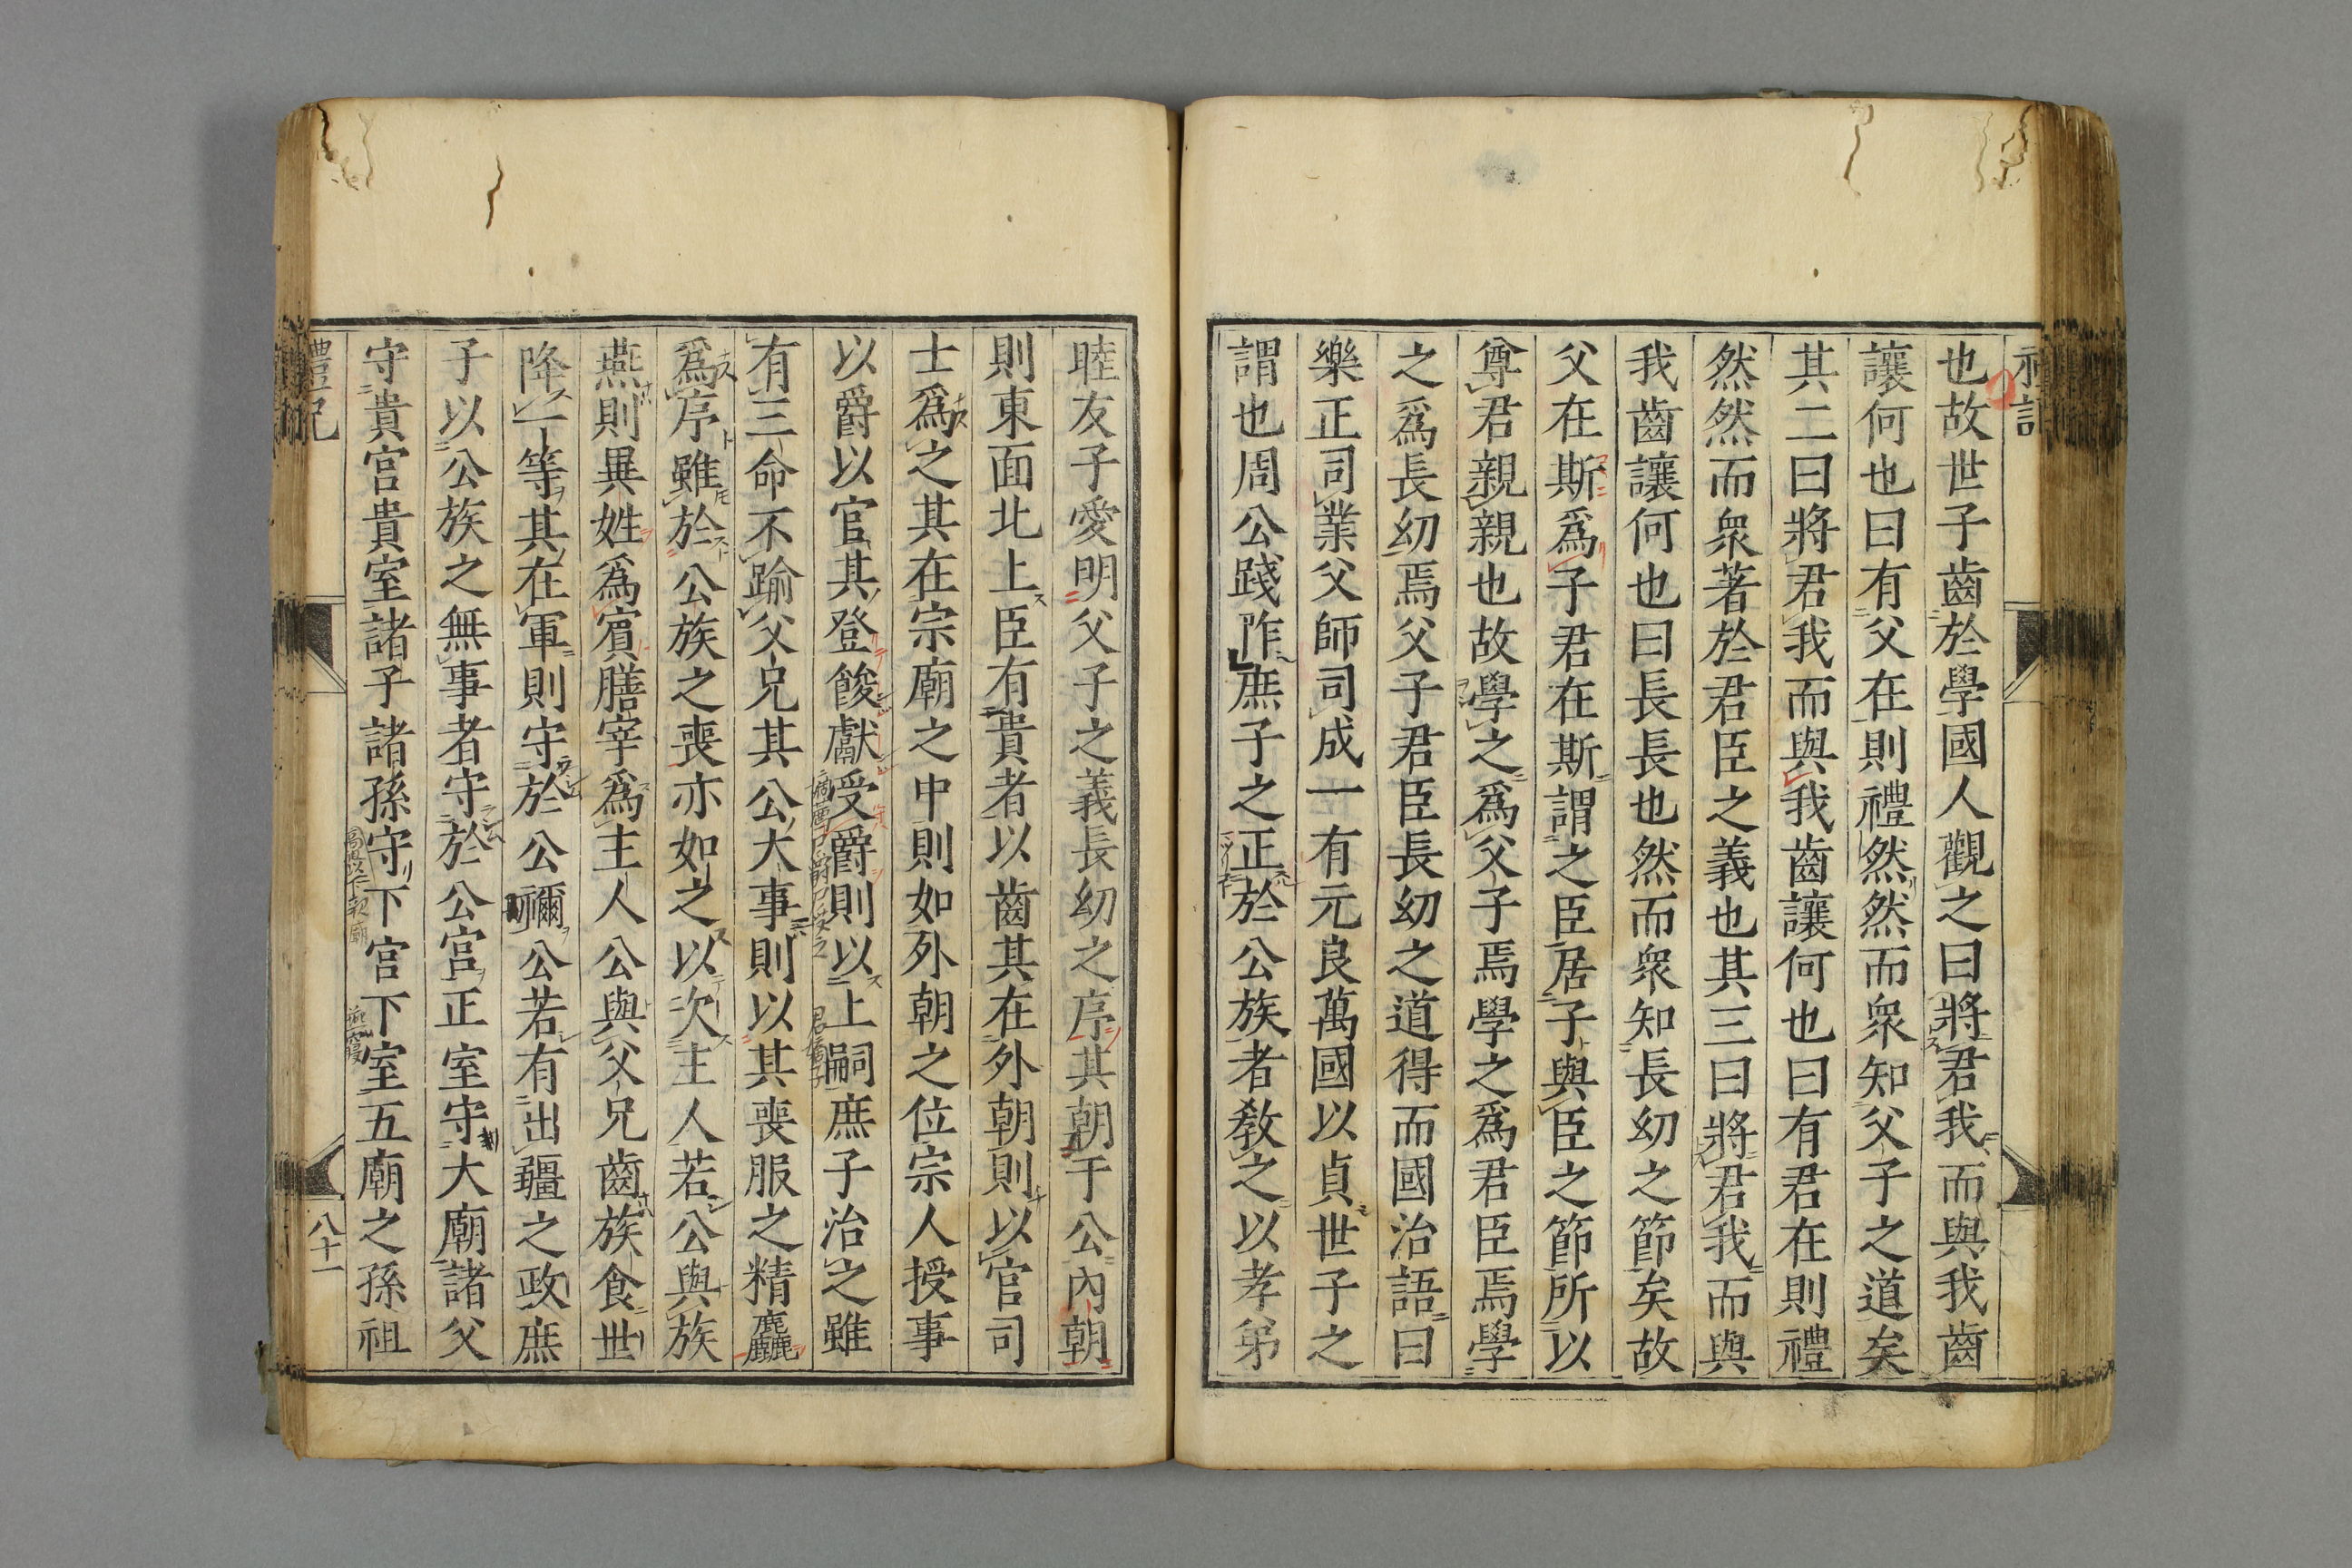 也故世子齒於學國人觀之曰將君我而與我齒
讓何也曰有父在則禮然然而衆知父子之道矣
其二曰將君我而與我齒讓何也曰有君在則禮
然然而衆著於君臣之義也其三曰將君我而與
我齒讓何也曰長長也然而衆知長幼之節矣故
父在斯爲子君在斯謂之臣居子與臣之節所以
尊君親親也故學之爲父子焉學之爲君臣焉學
之爲長幼焉父子君臣長幼之道得而國治語曰
樂正司業父師司成一有元良萬國以貞世子之
謂也周公踐阼庶子之正於公族者教之以孝弟
睦友子愛明父子之義長幼之序其朝于公內朝
則東面北上臣有貴者以齒其在外朝則以官司
士爲之其在宗廟之中則如外朝之位宗人授事
以爵以官其登餕獻受爵則以上嗣庶子治之雖
有三命不踰父兄其公大事則以其喪服之精麤
爲序雖於公族之喪亦如之以次主人若公與族
燕則異姓爲賓膳宰爲主人公與父兄齒族食世
降一等其在軍則守於公禰公若有出疆之政庶
子以公族之無事者守於公宮正室守大廟諸父
守貴宮貴室諸子諸孫守下宮下室五廟之孫祖
禮記
八十一